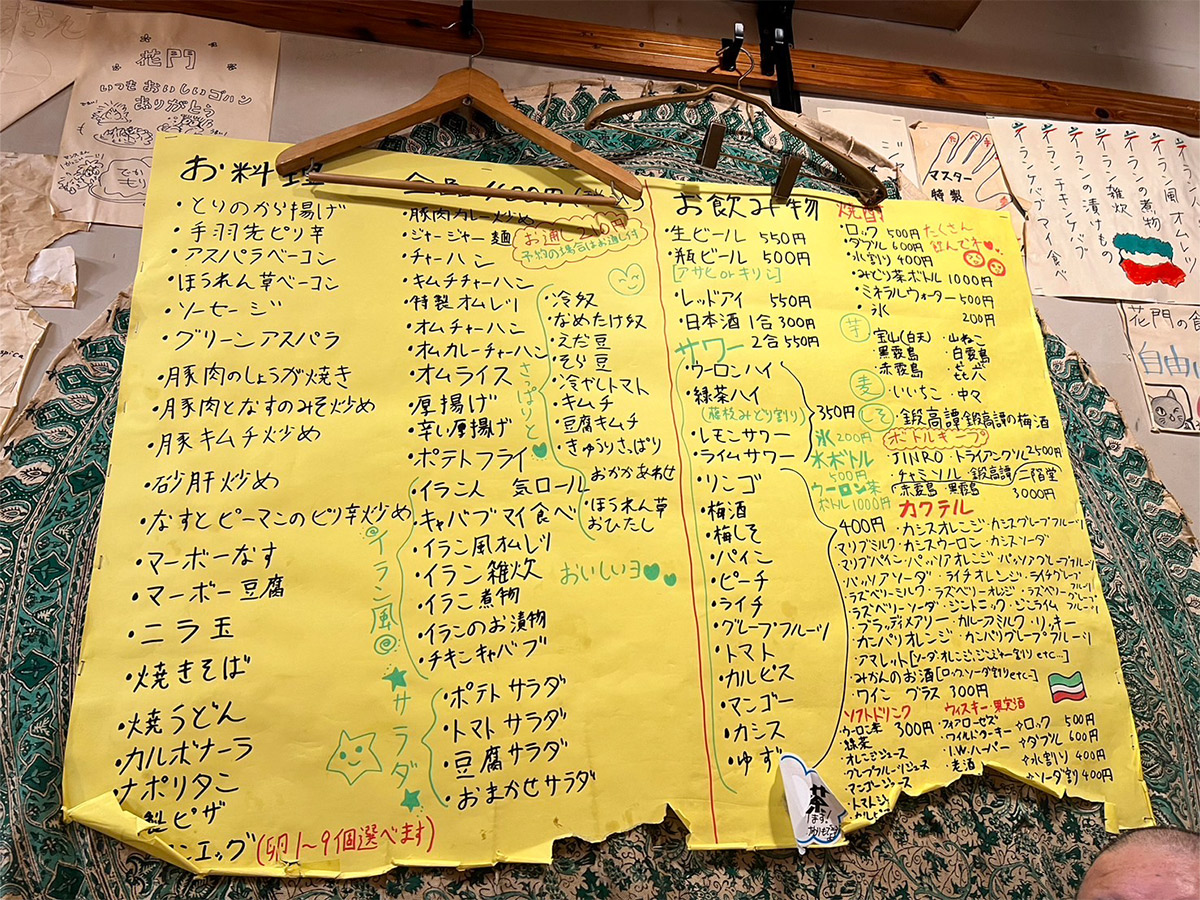 花門
いつもおいしいゴハン
ありがとう
お料理
・とりのから揚げ
・手羽先ピリ辛
・アスパラベーコン
・ほうれん草ベーコン
・ソーセージ
・グリーンアスパラ
・豚肉のしょうが焼き
・豚肉となすのみそ炒め
・豚キムチ炒め
・砂肝炒め
・なすとピーマンのピリ辛炒め
・マーボーなす
・マーボー豆腐
・ニラ玉
・焼きそば
・焼うどん
・カルボナーラ
ナポリタン
製ピザ
エッグ(卵1〜9個選べます)
・豚肉カレー炒め
・ジャージャー麺
・チャーハン
・キムチチャーハン
・特製オムレツ
・オムチャーハン
・オムカレーチャーハン
・オムライス
・厚揚げ
・辛い厚揚げ
・ポテトフライ
お通し
予約の場合はお通し付
さっぱりと
・冷奴
・なめたけ奴
・えだ豆
・そら豆
・冷やしトマト
・キムチ
・豆腐キムチ
・きゅうりさっぱり
おかかあわせ
・ほうれん草
おひたし
イラン風
・イラン人 気ロール
・キャバブマイ食べ
・イラン風オムレツ
・イラン雑炊
・イラン煮物
・イランのお漬物
・チキンキャバブ
おいしいヨ
サラダ
・ポテトサラダ
・トマトサラダ
・豆腐サラダ
・おまかせサラダ
お飲み物
・生ビール 550円
・瓶ビール 500円
[アサヒorキリン]
・レッドアイ 550円
・日本酒 1合 300円
2合 550円
サワー
・ウーロンハイ
・緑茶ハイ
(藤枝みどり割り)
・レモンサワー
・ライムサワー
350円
・リンゴ
・梅酒
・梅しそ
・パイン
・ピーチ
・ライチ
・グレープフルーツ
・トマト
・カルピス
・マンゴー
・カシス
・ゆず
焼酎
・ロック 500円
・ダブル 600円
・水割り 400円
・みどり茶ボトル 1000円
・ミネラルウォーター 500円
・氷 200円
たくさん
飲んでネ
芋
宝山(白天)・山ねこ
・黒霧島 ・白霧島
・赤霧島
麦
・いいちこ ・中々
しそ
・鍛高譚 鍛高譚の梅酒
氷 200円
水ボトル
500円
ウーロン茶
ボトル 1000円
ボトルキープ
JINRO・トライアングル 2500円
・チャミソル・鍛高譚 二階堂
赤霧島・黒霧島 3000円
カクテル
400円 ・カシスオレンジ・カシスグレープフルーツ
・マリブミルク・カシスウーロン・カシスソーダ
・マリブパイン・パッソアオレンジ・パッソアグレープフルーツ
・パッソアソーダ・ライチオレンジ・ライチグレープフルーツ
・ラズベリーミルク・ラズベリーオレンジ・ラズベリーグレープフルーツ
・ラズベリーソーダ・ジントニック・ジンライム
・ブラッディメアリー・カルーアミルク・リッキー
・カンパリオレンジ・カンパリグレープフルーツ
・アマレット[ソーダ・オレンジ、ジンジャー割り etc…]
・みかんのお酒[ロック、ソーダ割りetc…]
・ワイン グラス 300円
ソフトドリンク
・ウーロン茶 300円
・緑茶
・オレンジジュース
・グレープフルーツジュース
・マンゴージュース
・トマトジ
ウィスキー・果実酒
・フォアローゼズ
・ワイルドターキー
・I.W.ハーパー
・老酒
+ロック 500円
+ダブル 600円
+水割り 400円
+ソーダ割 400円
茶
マスター
特製
イラン風オムレツ
イランの煮物
イラン雑炊
イランの漬けもの
イランチキンケバブ
イランケバブマイ食べ
花門の
自由